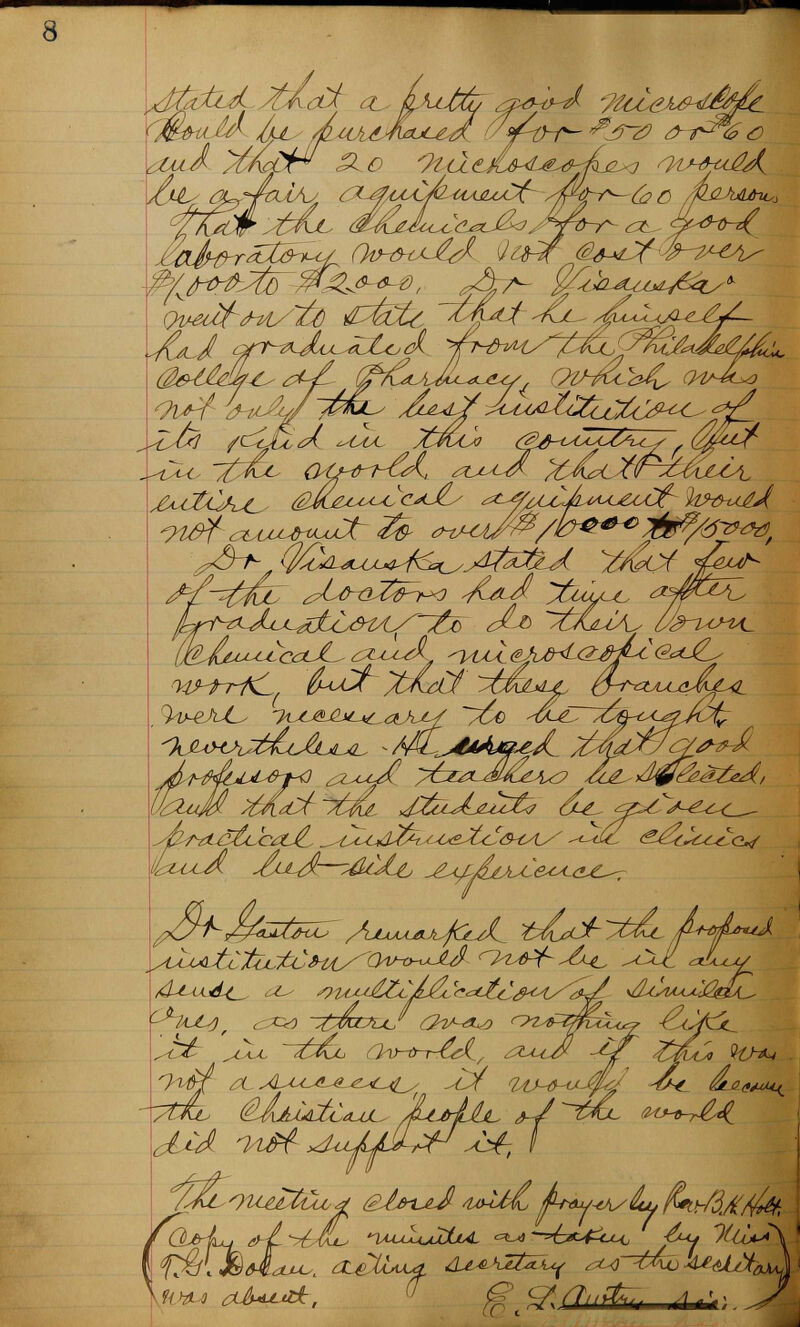 8
stated that a pretty good microscope
Would be purchased for $50 or $60
and that 20 microscopes would
be a fair aquipment for 60 persons
That the Chemicals for a good
laboratory would not cost over
$1,000 to $2,000, Dr Visanska
went on to state that he himself
had graduated from the Philadelphia
College of Pharmacy, which was
not only the best institution of
its kind in this country, but
in the world, and that their
entire Chemical aquipment would
not amount to over $10000 to $15000,
Dr. Visanska stated that few
of the doctors had time after
graduation to do their own
Chemical and microscopical
work, but that these branches
were necessary to be tought
nevertheless - He urged that good
professors and teachers be selected,
and that the students be given
practical instruction in clinics
and bed-side experience.
Dr Gaston remarked that the proposed
institution would not be in any
sense a multiplication of similar
Ones, as there was nothing like
it in the world, and if this was
not a success, it would be because
the Christian people of the world
did not support it,
The meeting closed with prayer by Rev B.K. Holt.
(Copy of the minutes as taken by Miss
Dolan, acting secretary as the secretary
was absent, E. L. Austin Sec.)